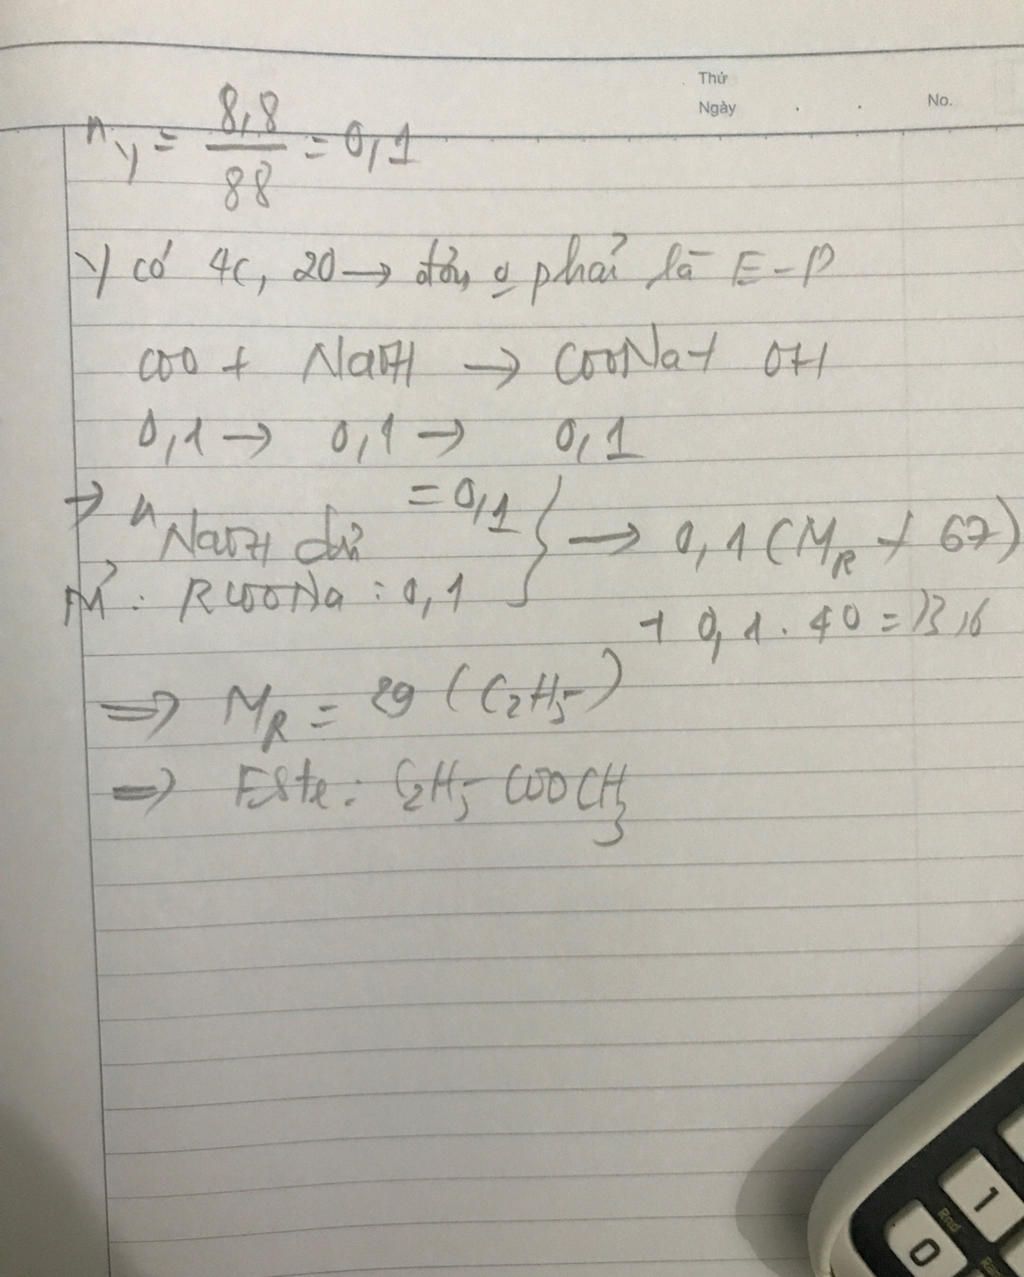 Thứ
Ngày . . No.
n_Y = 8,8 / 88 = 0,1
Y có 4C, 2O → phải là E-P
COO + NaOH → COONa + OH
0,1 → 0,1 → 0,1
→ n_NaOH dư = 0,1 } → 0,1 (M_R + 67)
M': RCOONa : 0,1
+ 0,1 . 40 = 13,6
⇒ M_R = 29 (C2H5-)
⇒ Este: C2H5-COOCH3
1
0
Rnd